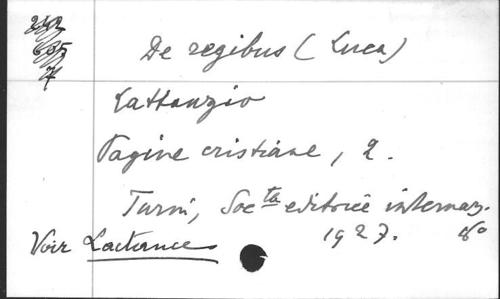 De regibus (Luca)
Lattanzio
Pagine cristiane, 2.
Turni, Soc.ta editrice internaz.
1927. 8°
Voir Lactance